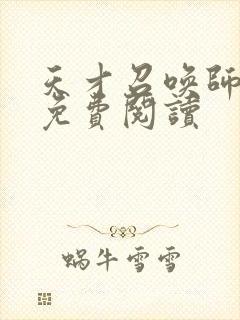 天才召喚師
免費閱讀
蝸牛雪雪